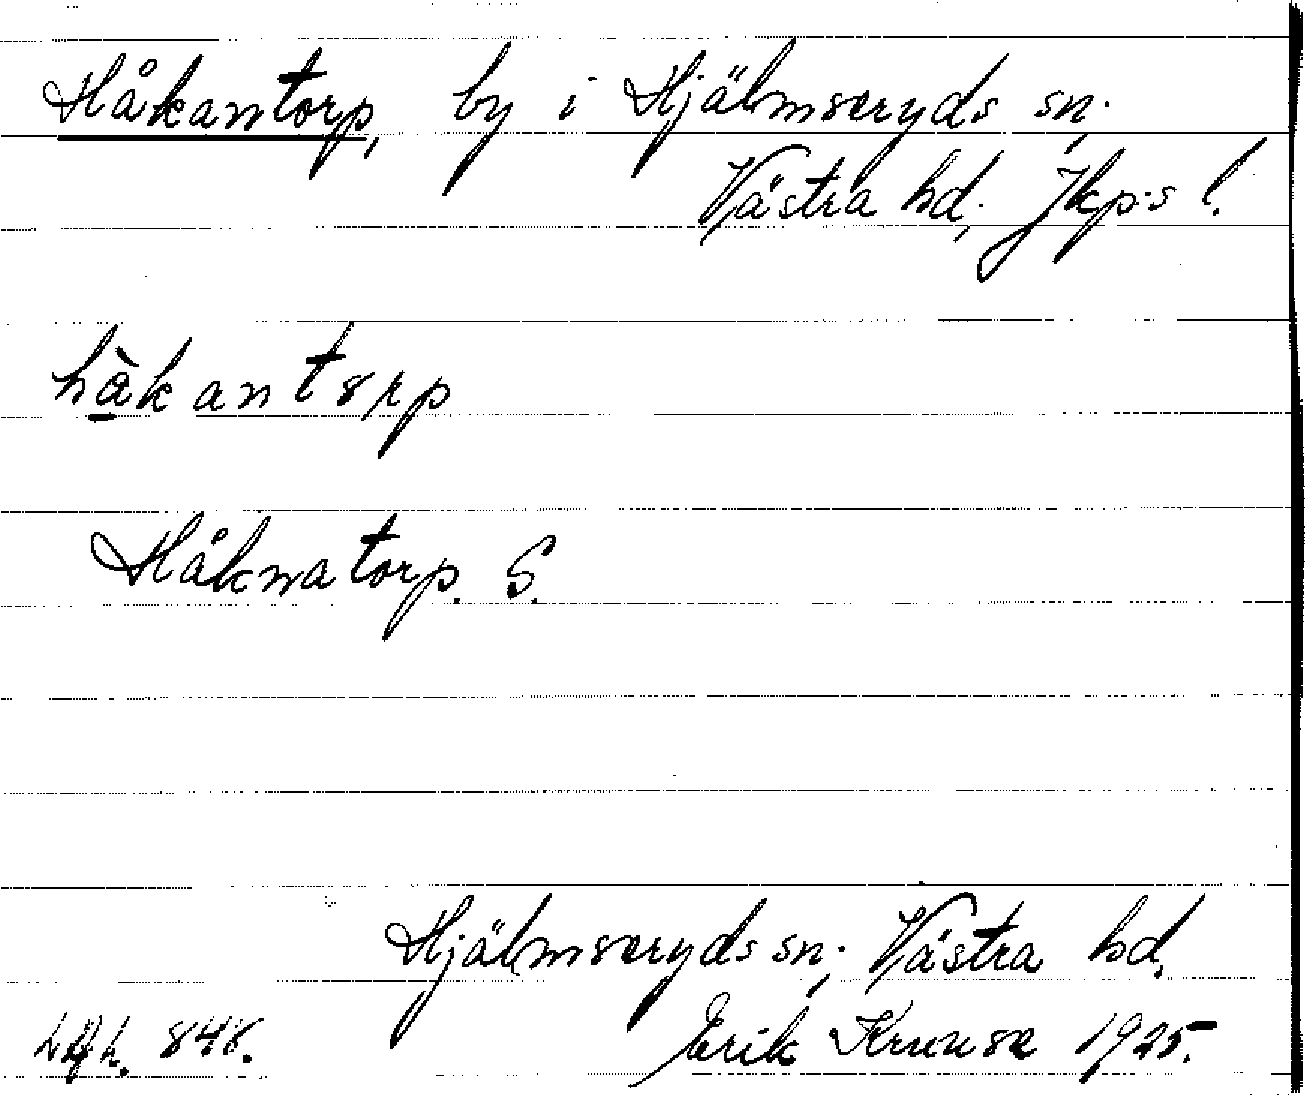 Håkantorp, by i Hjälmseryds sn;
Västra hd; Jkp:s l.
hàkantorp
Håknatorp. S.
Hjälmseryds sn; Västra hd.
848. Erik Kruuse 1925.